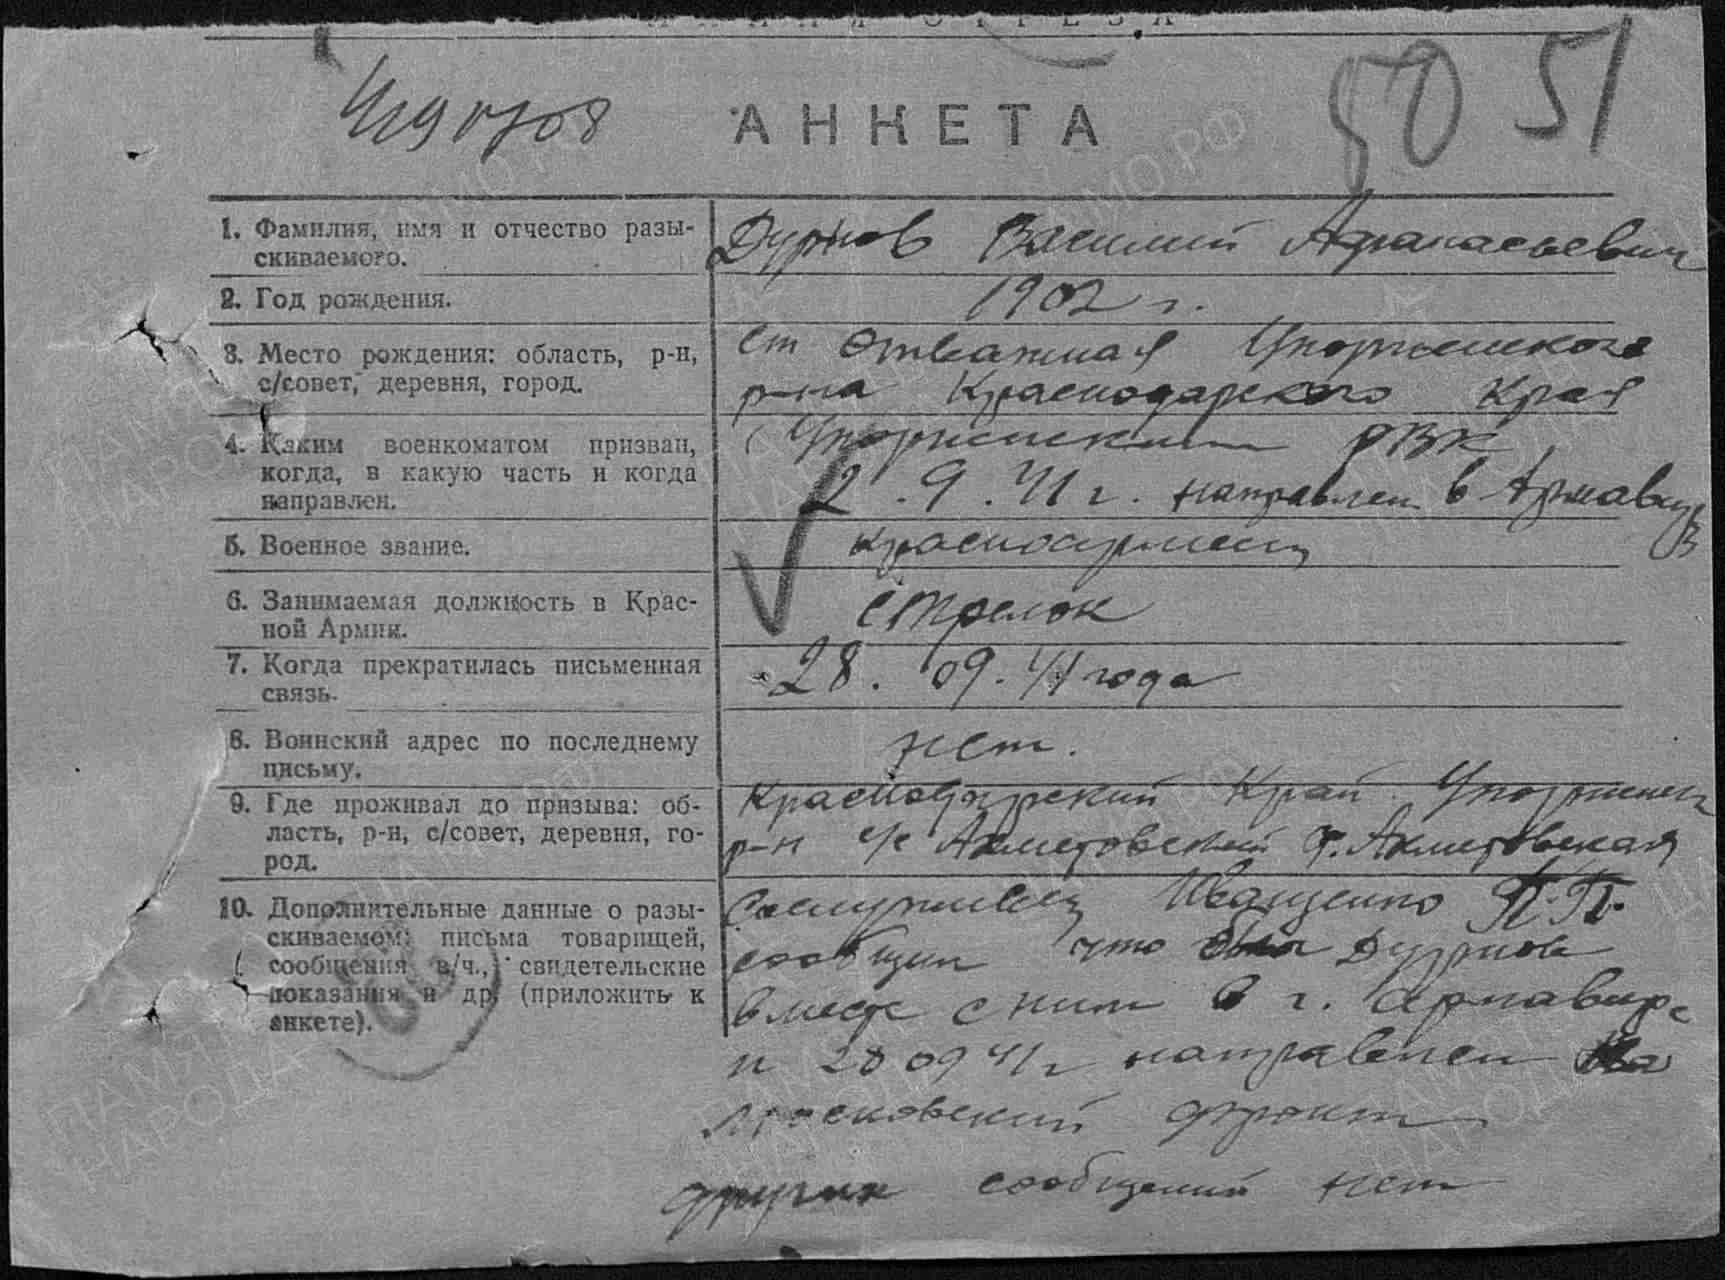 ЛИНИЯ ОТРЕЗА
50 51
АНКЕТА
1. Фамилия, имя и отчество разы-
скиваемого.
Дурнов Василий Афанасьевич
2. Год рождения.
1902 г.
3. Место рождения: область, р-н,
с/совет, деревня, город.
ст Отважная Упорненского
р-на Краснодарского Края
4. Каким военкоматом призван,
когда, в какую часть и когда
направлен.
Упорненским РВК
2.9.41 г. направлен в Армавир
5. Военное звание.
красноармеец
6. Занимаемая должность в Крас-
ной Армии.
стрелок
7. Когда прекратилась письменная
связь.
28. 09. 41 года
8. Воинский адрес по последнему
письму.
нет.
9. Где проживал до призыва: об-
ласть, р-н, с/совет, деревня, го-
род.
Краснодарский Край Упорненск
р-н с/с Ахметовский ст. Ахметовская
10. Дополнительные данные о разы-
скиваемом: письма товарищей,
сообщения в/ч., свидетельские
показания и др. (приложить к
анкете).
сослуживец Иващенко П.П.
сообщил что был Дурнов
вместе с ним в г. Армавире
и 28 09 41 г направлен на
московский фронт
других сообщений нет
ПАМЯТЬ
НАРОДА